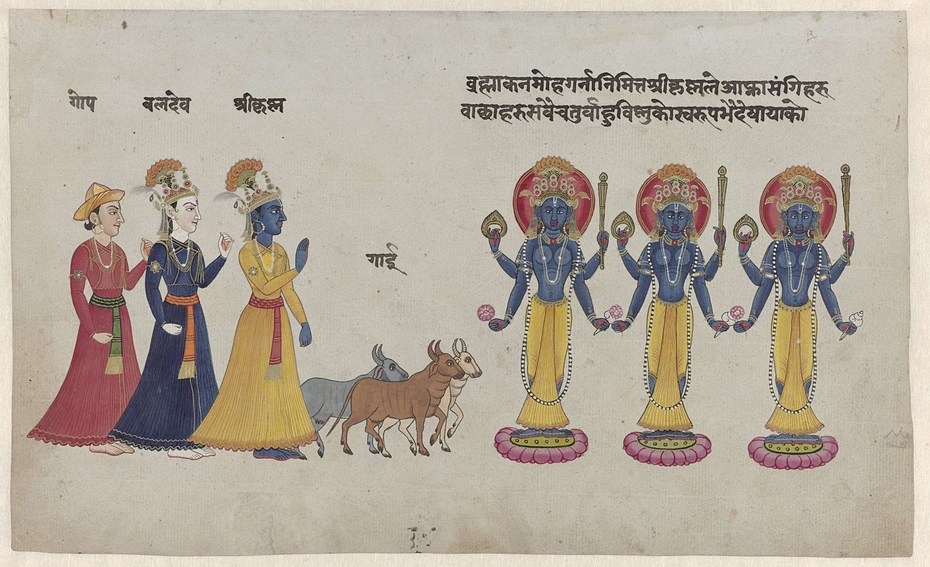 गोप
बलदेव
श्रीकृष्ण
गाई
व्रह्माकनमोहगर्नानिमित्तश्रीकृष्णलेआफ्नासंगिहरु
वाछाहरुसवैचतुर्वाहुविष्णुकोस्वरुप